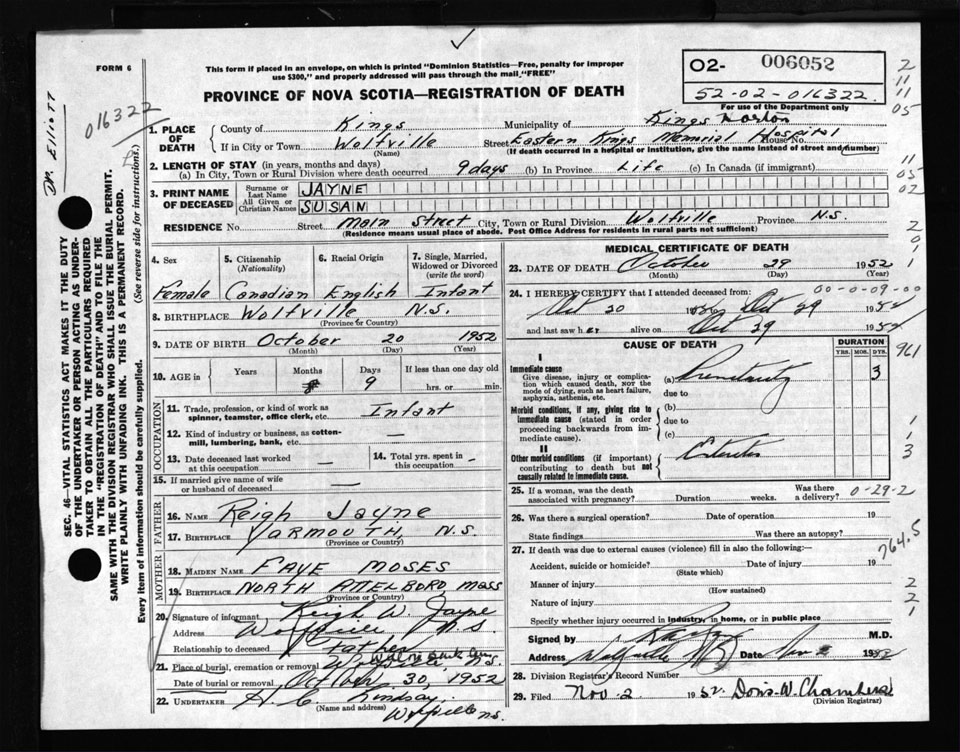 FORM 6
This form if placed in an envelope, on which is printed "Dominion Statistics—Free, penalty for improper
use $300," and properly addressed will pass through the mail "FREE"
PROVINCE OF NOVA SCOTIA—REGISTRATION OF DEATH
02- 006052
52-02-016322
For use of the Department only
2
11
11
05
Dr. Elliott
016322
SEC. 46—VITAL STATISTICS ACT MAKES IT THE DUTY
OF THE UNDERTAKER OR PERSON ACTING AS UNDER-
TAKER TO OBTAIN ALL THE PARTICULARS REQUIRED
IN THE "REGISTRATION OF DEATH" AND TO FILE THE
SAME WITH THE DIVISION REGISTRAR WHO SHALL ISSUE THE BURIAL PERMIT.
WRITE PLAINLY WITH UNFADING INK. THIS IS A PERMANENT RECORD.
Every item of information should be carefully supplied. (See reverse side for instructions.)
1. PLACE OF DEATH
County of Kings Municipality of Kings
If in City or Town Wolfville Street Eastern Kings Memorial Hospital House No.
(Name) (If death occurred in a hospital or institution, give the name instead of street and number)
2. LENGTH OF STAY (in years, months and days)
(a) In City, Town or Rural Division where death occurred 9 days (b) In Province Life (c) In Canada (if immigrant)
11
05
02
3. PRINT NAME OF DECEASED
Surname or Last Name JAYNE
All Given or Christian Names SUSAN
RESIDENCE No. Street Main Street City, Town or Rural Division Wolfville Province N.S.
(Residence means usual place of abode. Post Office Address for residents in rural parts not sufficient)
4. Sex Female
5. Citizenship (Nationality) Canadian
6. Racial Origin English
7. Single, Married, Widowed or Divorced (write the word) Infant
8. BIRTHPLACE Wolfville N.S.
(Province or Country)
9. DATE OF BIRTH October 20 1952
(Month) (Day) (Year)
10. AGE in Years Months Days 9 If less than one day old
hrs. or min.
OCCUPATION
11. Trade, profession, or kind of work as
spinner, teamster, office clerk, etc. Infant
12. Kind of industry or business, as cotton-
mill, lumbering, bank, etc. —
13. Date deceased last worked
at this occupation —
14. Total yrs. spent in
this occupation -
15. If married give name of wife
or husband of deceased —
FATHER
16. NAME Keigh Jayne
17. BIRTHPLACE YARMOUTH, N.S.
(Province or Country)
MOTHER
18. MAIDEN NAME FAYE MOSES
19. BIRTHPLACE NORTH ATTELBORO, MASS
(Province or Country)
20. Signature of informant Keigh W. Jayne
Address Wolfville N.S.
Relationship to deceased Father
21. Place of burial, cremation or removal
Date of burial or removal October 30, 1952
22. UNDERTAKER H. C. Lindsay
(Name and address) Wolfville N.S.
MEDICAL CERTIFICATE OF DEATH
23. DATE OF DEATH October 29 1952
(Month) (Day) (Year)
00-0-09-00
24. I HEREBY CERTIFY that I attended deceased from:
Oct 20 1952 Oct 29 1952
and last saw her alive on Oct 29 1952
CAUSE OF DEATH
DURATION
YRS. MOS. DYS.
961
I
Immediate cause
Give disease, injury or complica-
tion which caused death, nor the
mode of dying, such as heart failure,
asphyxia, asthenia, etc.
(a) Prematurity 3
due to
Morbid conditions, if any, giving rise to
immediate cause (stated in order
proceeding backwards from im-
mediate cause).
(b)
due to
(c)
II
Other morbid conditions (if important)
contributing to death but not
causally related to immediate cause.
Enteritis
1
1
3
25. If a woman, was the death
associated with pregnancy? Duration weeks. Was there
a delivery? 0-29-2
26. Was there a surgical operation? Date of operation 19
State findings Was there an autopsy?
764.5
27. If death was due to external causes (violence) fill in also the following:—
Accident, suicide or homicide? Date of injury 19
(State which)
Manner of injury
(How sustained)
Nature of injury
Specify whether injury occurred in industry, in home, or in public place
2
2
1
Signed by M.D.
Address Wolfville Date Nov 1952
28. Division Registrar's Record Number
29. Filed Nov. 2 1952 Doris W. Chambers
(Division Registrar)